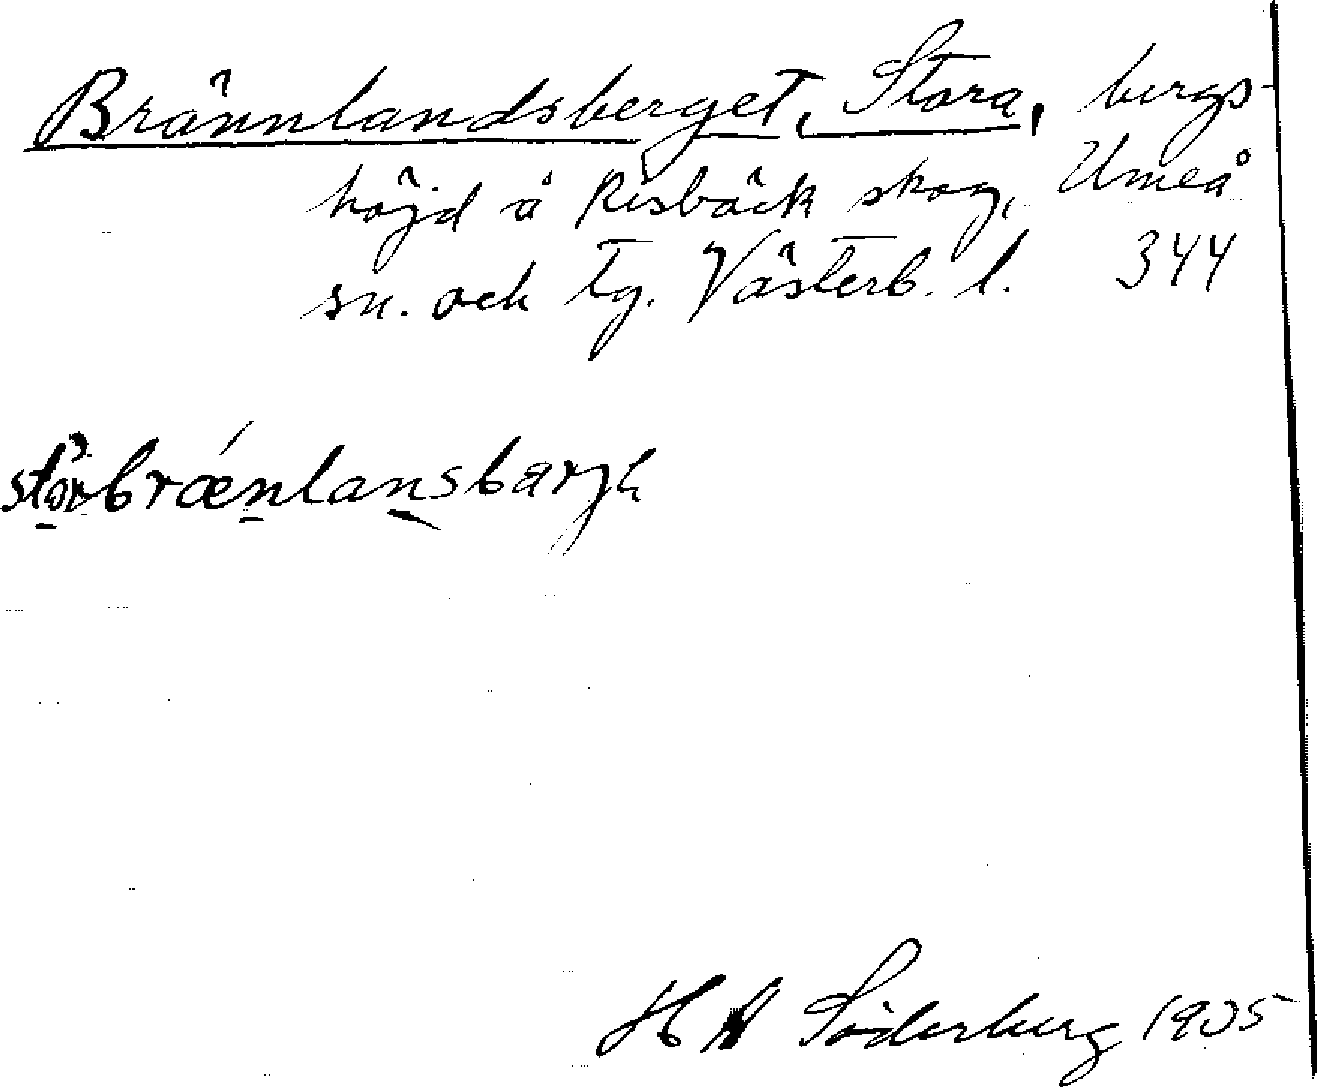 Brännlandsberget, Stora, bergs-
höjd å Risbäck skog, Umeå
sn. och tg. Västerb. l. 344
H A Söderberg 1905